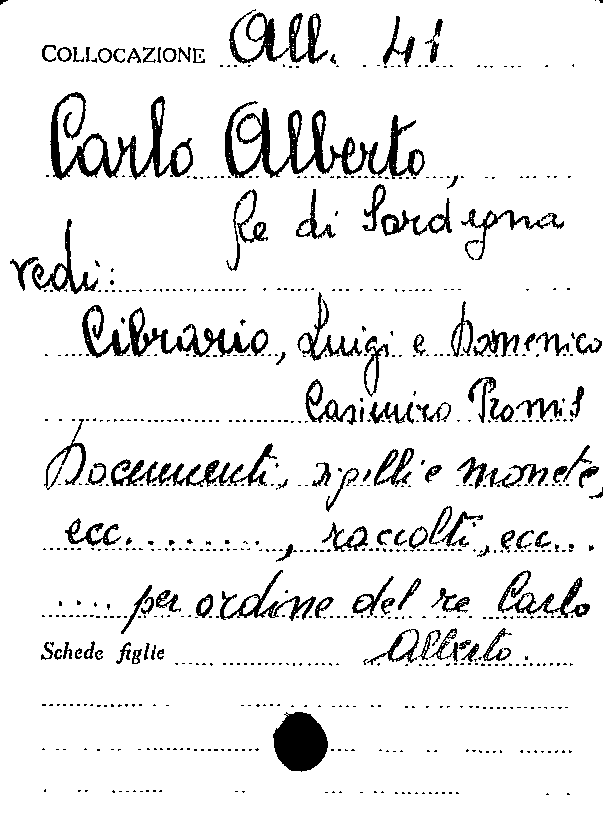 COLLOCAZIONE All. 41
Carlo Alberto,
Re di Sardegna
vedi:
Cibrario, Luigi e Domenico
Casimiro Promis
Documenti, sigilli e monete,
ecc........, raccolti, ecc...
.... per ordine del re Carlo
Schede figlie Alberto.